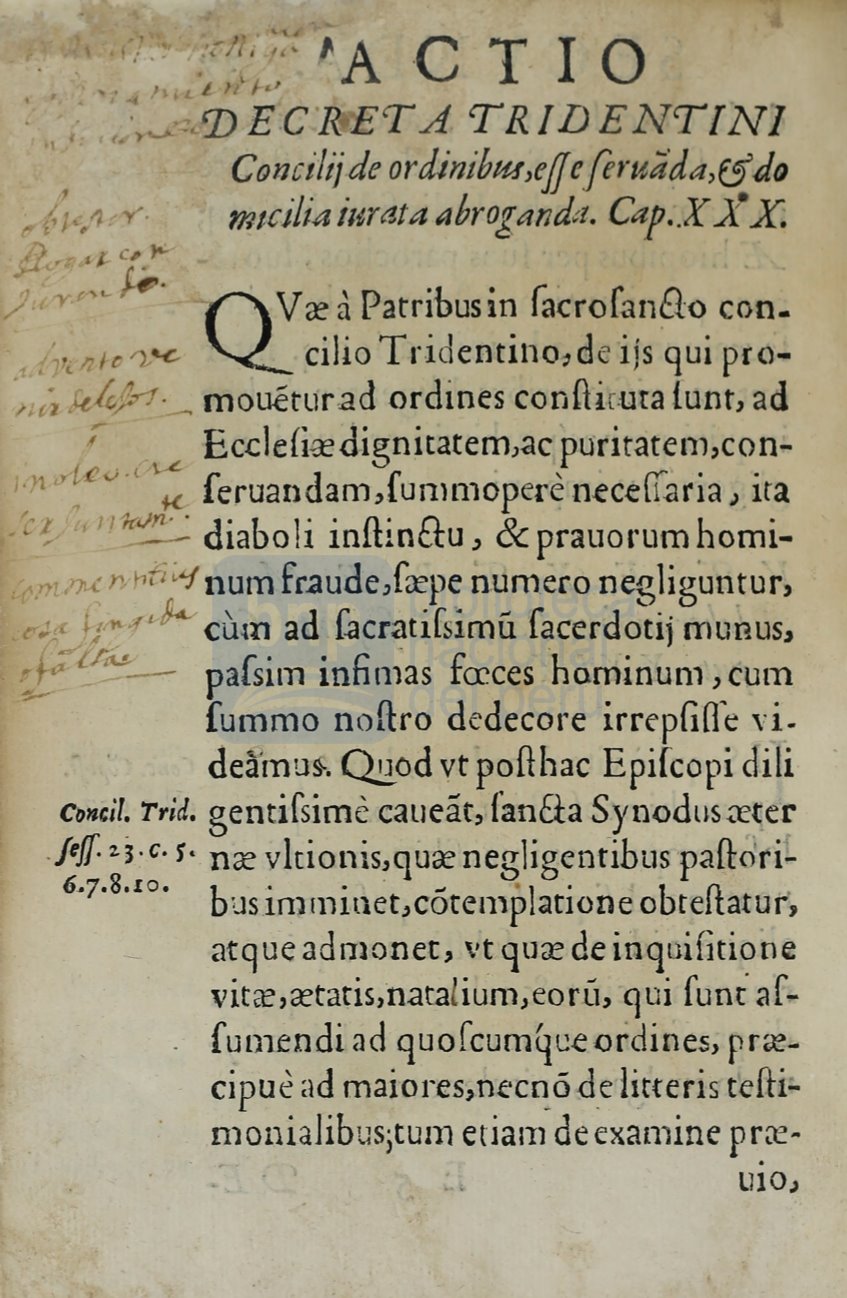 ACTIO
DECRETA TRIDENTINI
Concilij de ordinibus, eſſe ſeruãda, & do
micilia iurata abroganda. Cap. XXX.
QVæ à Patribus in ſacroſancto con-
cilio Tridentino, de ijs qui pro-
mouẽtur ad ordines conſtituta ſunt, ad
Eccleſiæ dignitatem, ac puritatem, con-
ſeruandam, ſummoperè neceſſaria, ita
diaboli inſtinctu, & prauorum homi-
num fraude, ſæpe numero negliguntur,
cùm ad ſacratiſsimũ ſacerdotij munus,
paſsim infimas fœces hominum, cum
ſummo noſtro dedecore irrepſiſſe vi-
deãmus. Quod vt poſthac Epiſcopi dili
Concil. Trid.
ſeſſ. 23. c. 5.
6.7.8.10.
gentiſsimè caueãt, ſancta Synodus æter
næ vltionis, quæ negligentibus paſtori-
bus imminet, cõtemplatione obteſtatur,
atque admonet, vt quæ de inquiſitione
vitæ, ætatis, natalium, eorũ, qui ſunt aſ-
ſumendi ad quoſcumq́ue ordines, præ-
cipuè ad maiores, necnõ de litteris teſti-
monialibus; tum etiam de examine præ-
uio,